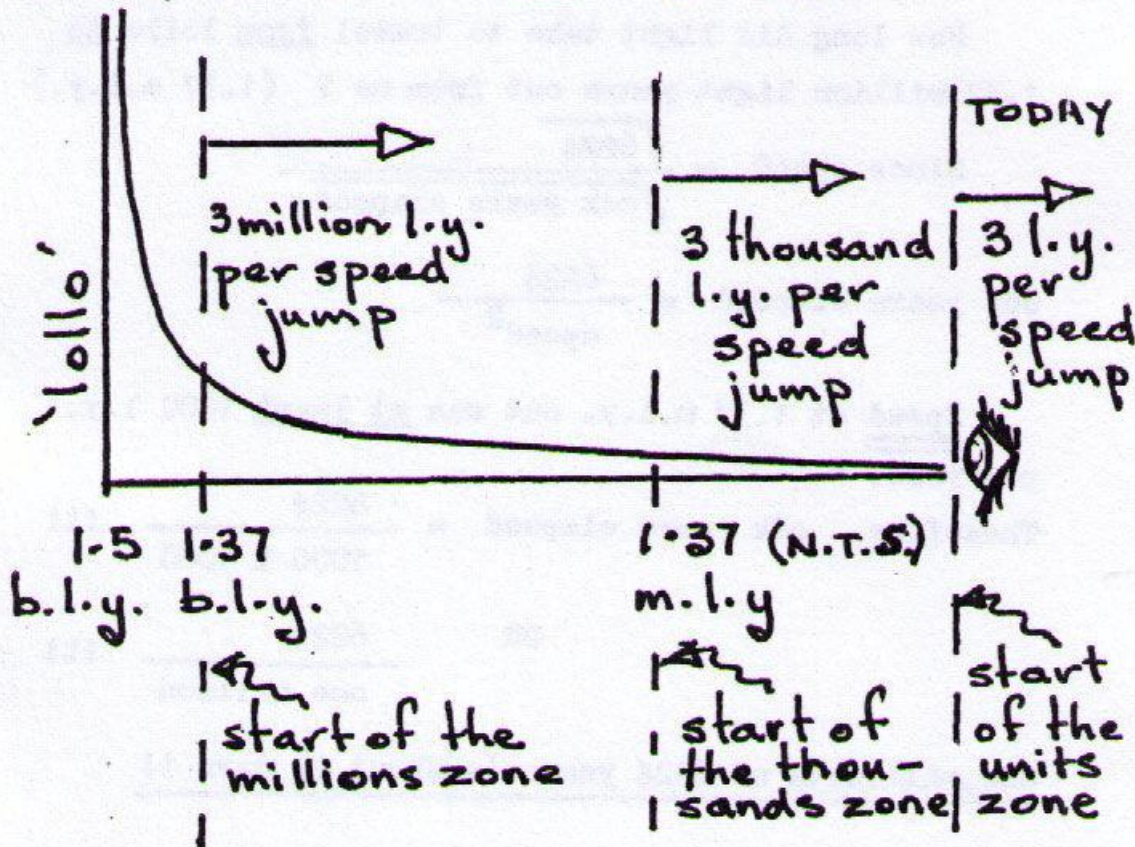 TODAY
3 million l.y.
per speed
jump
3 thousand
l.y. per
speed
jump
3 l.y.
per
speed
jump
'lollo'
1.5
b.l.y.
1.37
b.l.y.
1.37 (N.T.S.)
m.l.y
start of the
millions zone
start of
the thou-
sands zone
start
of the
units
zone